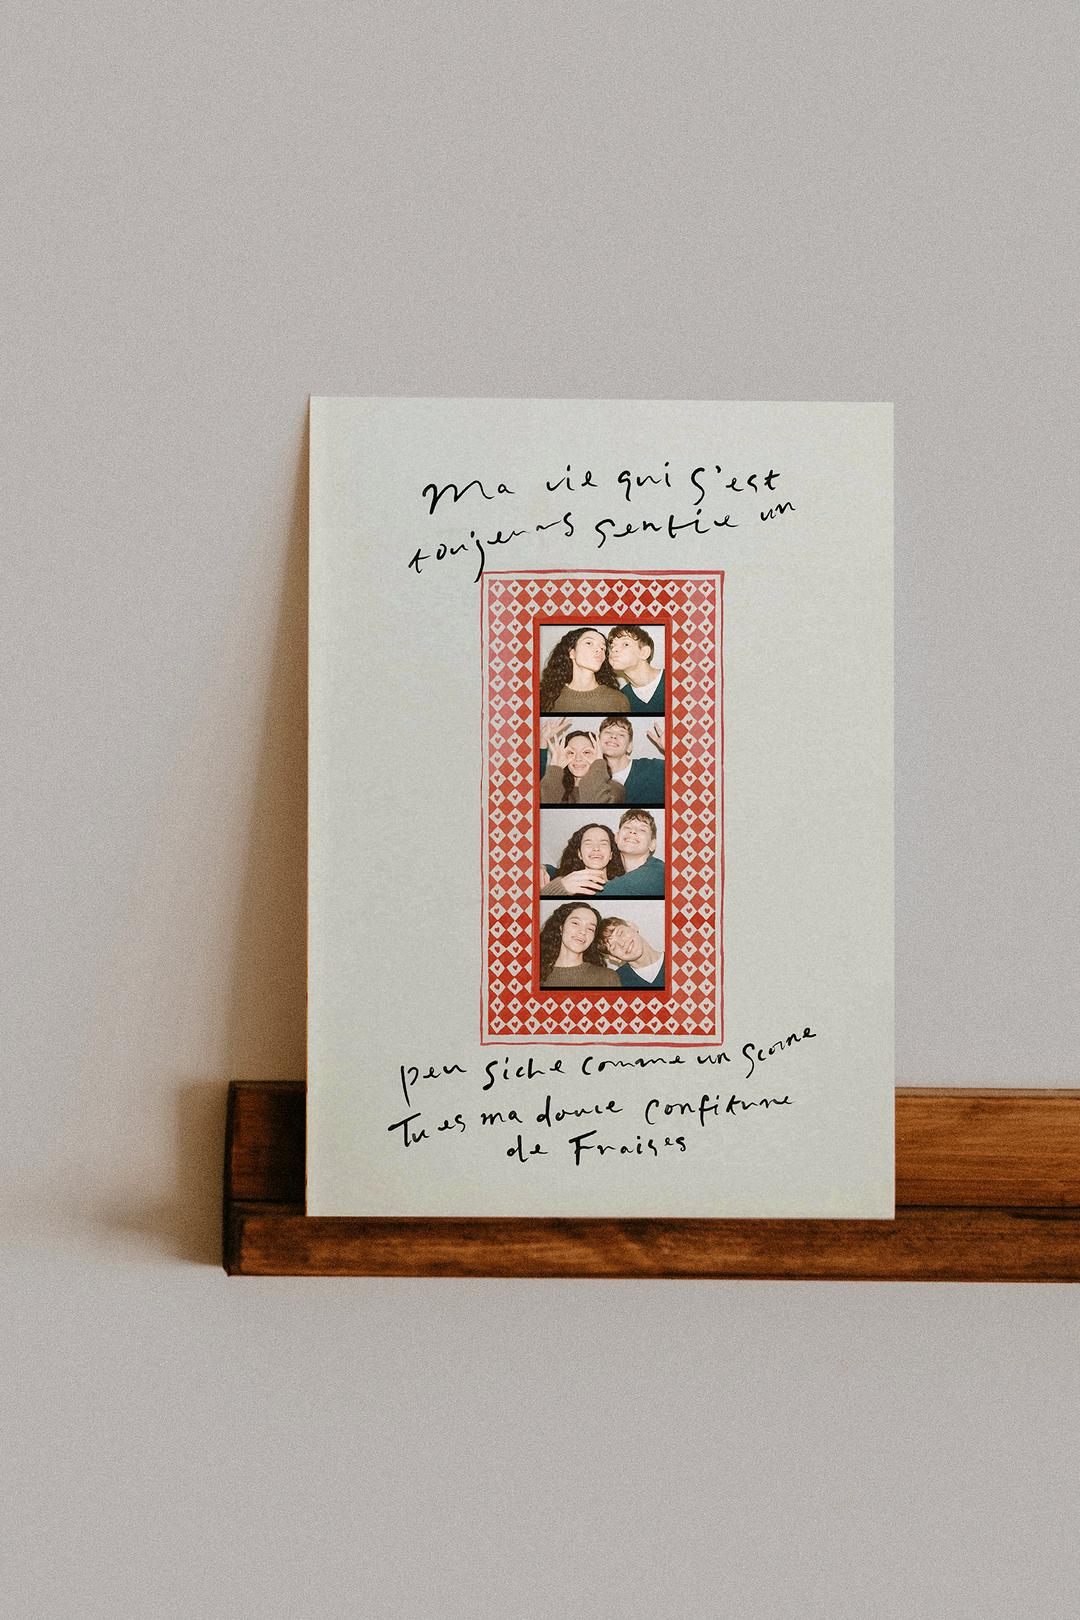 Ma vie qui s'est
toujours sentie un
peu siche comme un scone
Tu es ma douce confiture
de Fraises